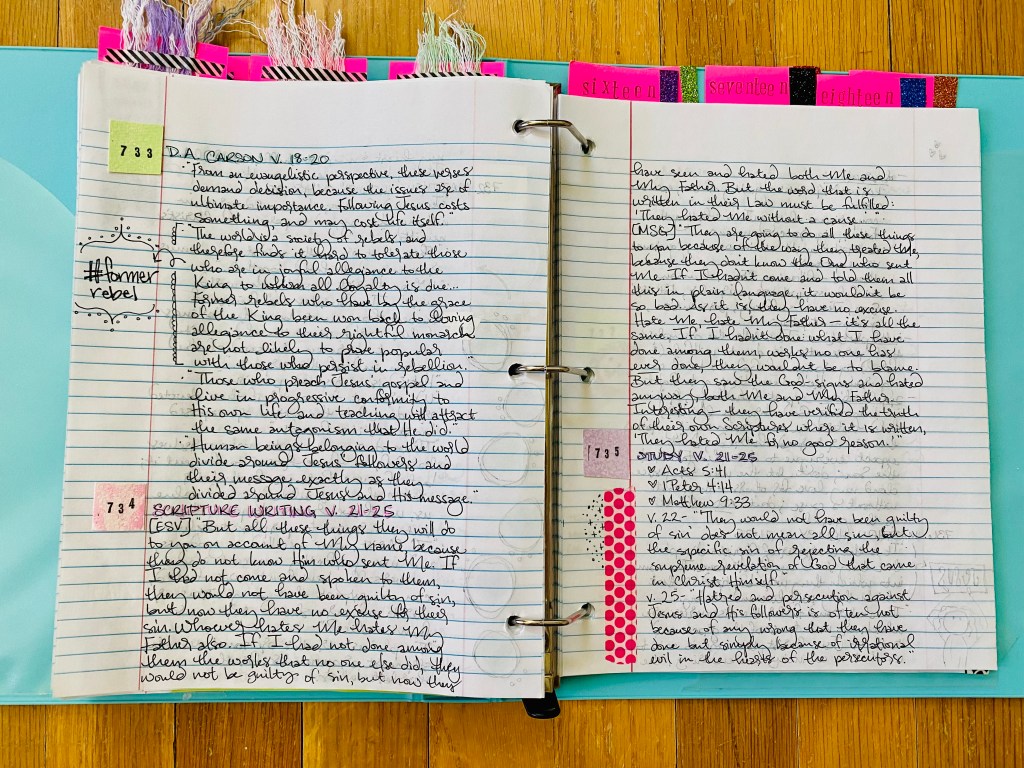 sixteen
seventeen
eighteen
733
D.A. CARSON V. 18-20
"From an evangelistic perspective, these verses
demand decision, because the issues are of
ultimate importance. Following Jesus costs
something, and may cost life itself."
"The world is a society of rebels, and
therefore finds it hard to tolerate those
who are in joyful allegiance to the
King to whom all loyalty is due...
Former rebels who have by the grace
of the King been won back to loving
allegiance to their rightful monarch
are not likely to prove popular
with those who persist in rebellion."
#former
rebel
"Those who preach Jesus' gospel and
live in progressive conformity to
His own life and teaching will attract
the same antagonism that He did."
"Human beings belonging to the world
divide around Jesus' followers and
their message exactly as they
divided around Jesus and His message."
734
SCRIPTURE WRITING V. 21-25
[ESV] "But all these things they will do
to you on account of My name because
they do not know Him who sent Me. If
I had not come and spoken to them,
they would not have been guilty of sin,
but now they have no excuse for their
sin. Whoever hates Me hates My
Father also. If I had not done among
them the works that no one else did, they
would not be guilty of sin, but now they
have seen and hated both Me and
My Father. But the word that is
written in their Law must be fulfilled:
'They hated Me without a cause.'"
[MSG] "They are going to do all these things
to you because of the way they treated Me,
because they don't know the One who sent
Me. If I hadn't come and told them all
this in plain language, it wouldn't be
so bad. As it is, they have no excuse.
Hate Me, hate My Father - it's all the
same. If I hadn't done what I have
done among them, works no one has
ever done, they wouldn't be to blame.
But they saw the God-signs and hated
anyway, both Me and My Father.
Interesting - they have verified the truth
of their own Scriptures where it is written,
'They hated Me for no good reason.'"
735
STUDY V. 21-25
♡ Acts 5:41
♡ 1 Peter 4:14
♡ Matthew 9:33
v. 22 - "They would not have been guilty
of sin does not mean all sin, but
the specific sin of rejecting the
supreme revelation of God that came
in Christ Himself."
v. 25 - "Hatred and persecution against
Jesus and His followers is often not
because of any wrong that they have
done but simply because of irrational
evil in the hearts of the persecutors."